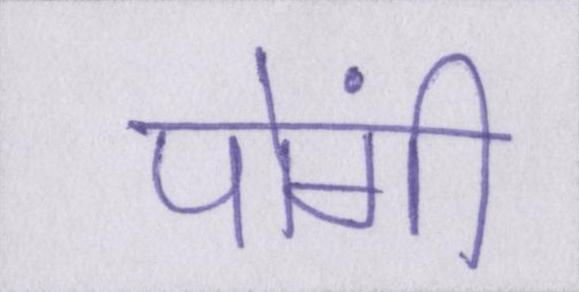 पोंगी